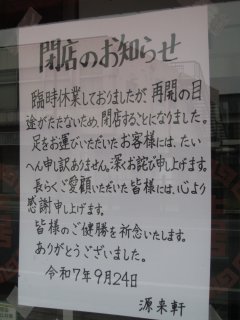 閉店のお知らせ
臨時休業しておりましたが、再開の目
途がたたないため、閉店することになりました。
足をお運びいただいたお客様には、たい
へん申し訳ありません。深くお詫び申し上げます。
長らくご愛顧いただいた皆様には、心より
感謝申し上げます。
皆様のご健勝を祈念いたします。
ありがとうございました。
令和7年9月24日
源来軒